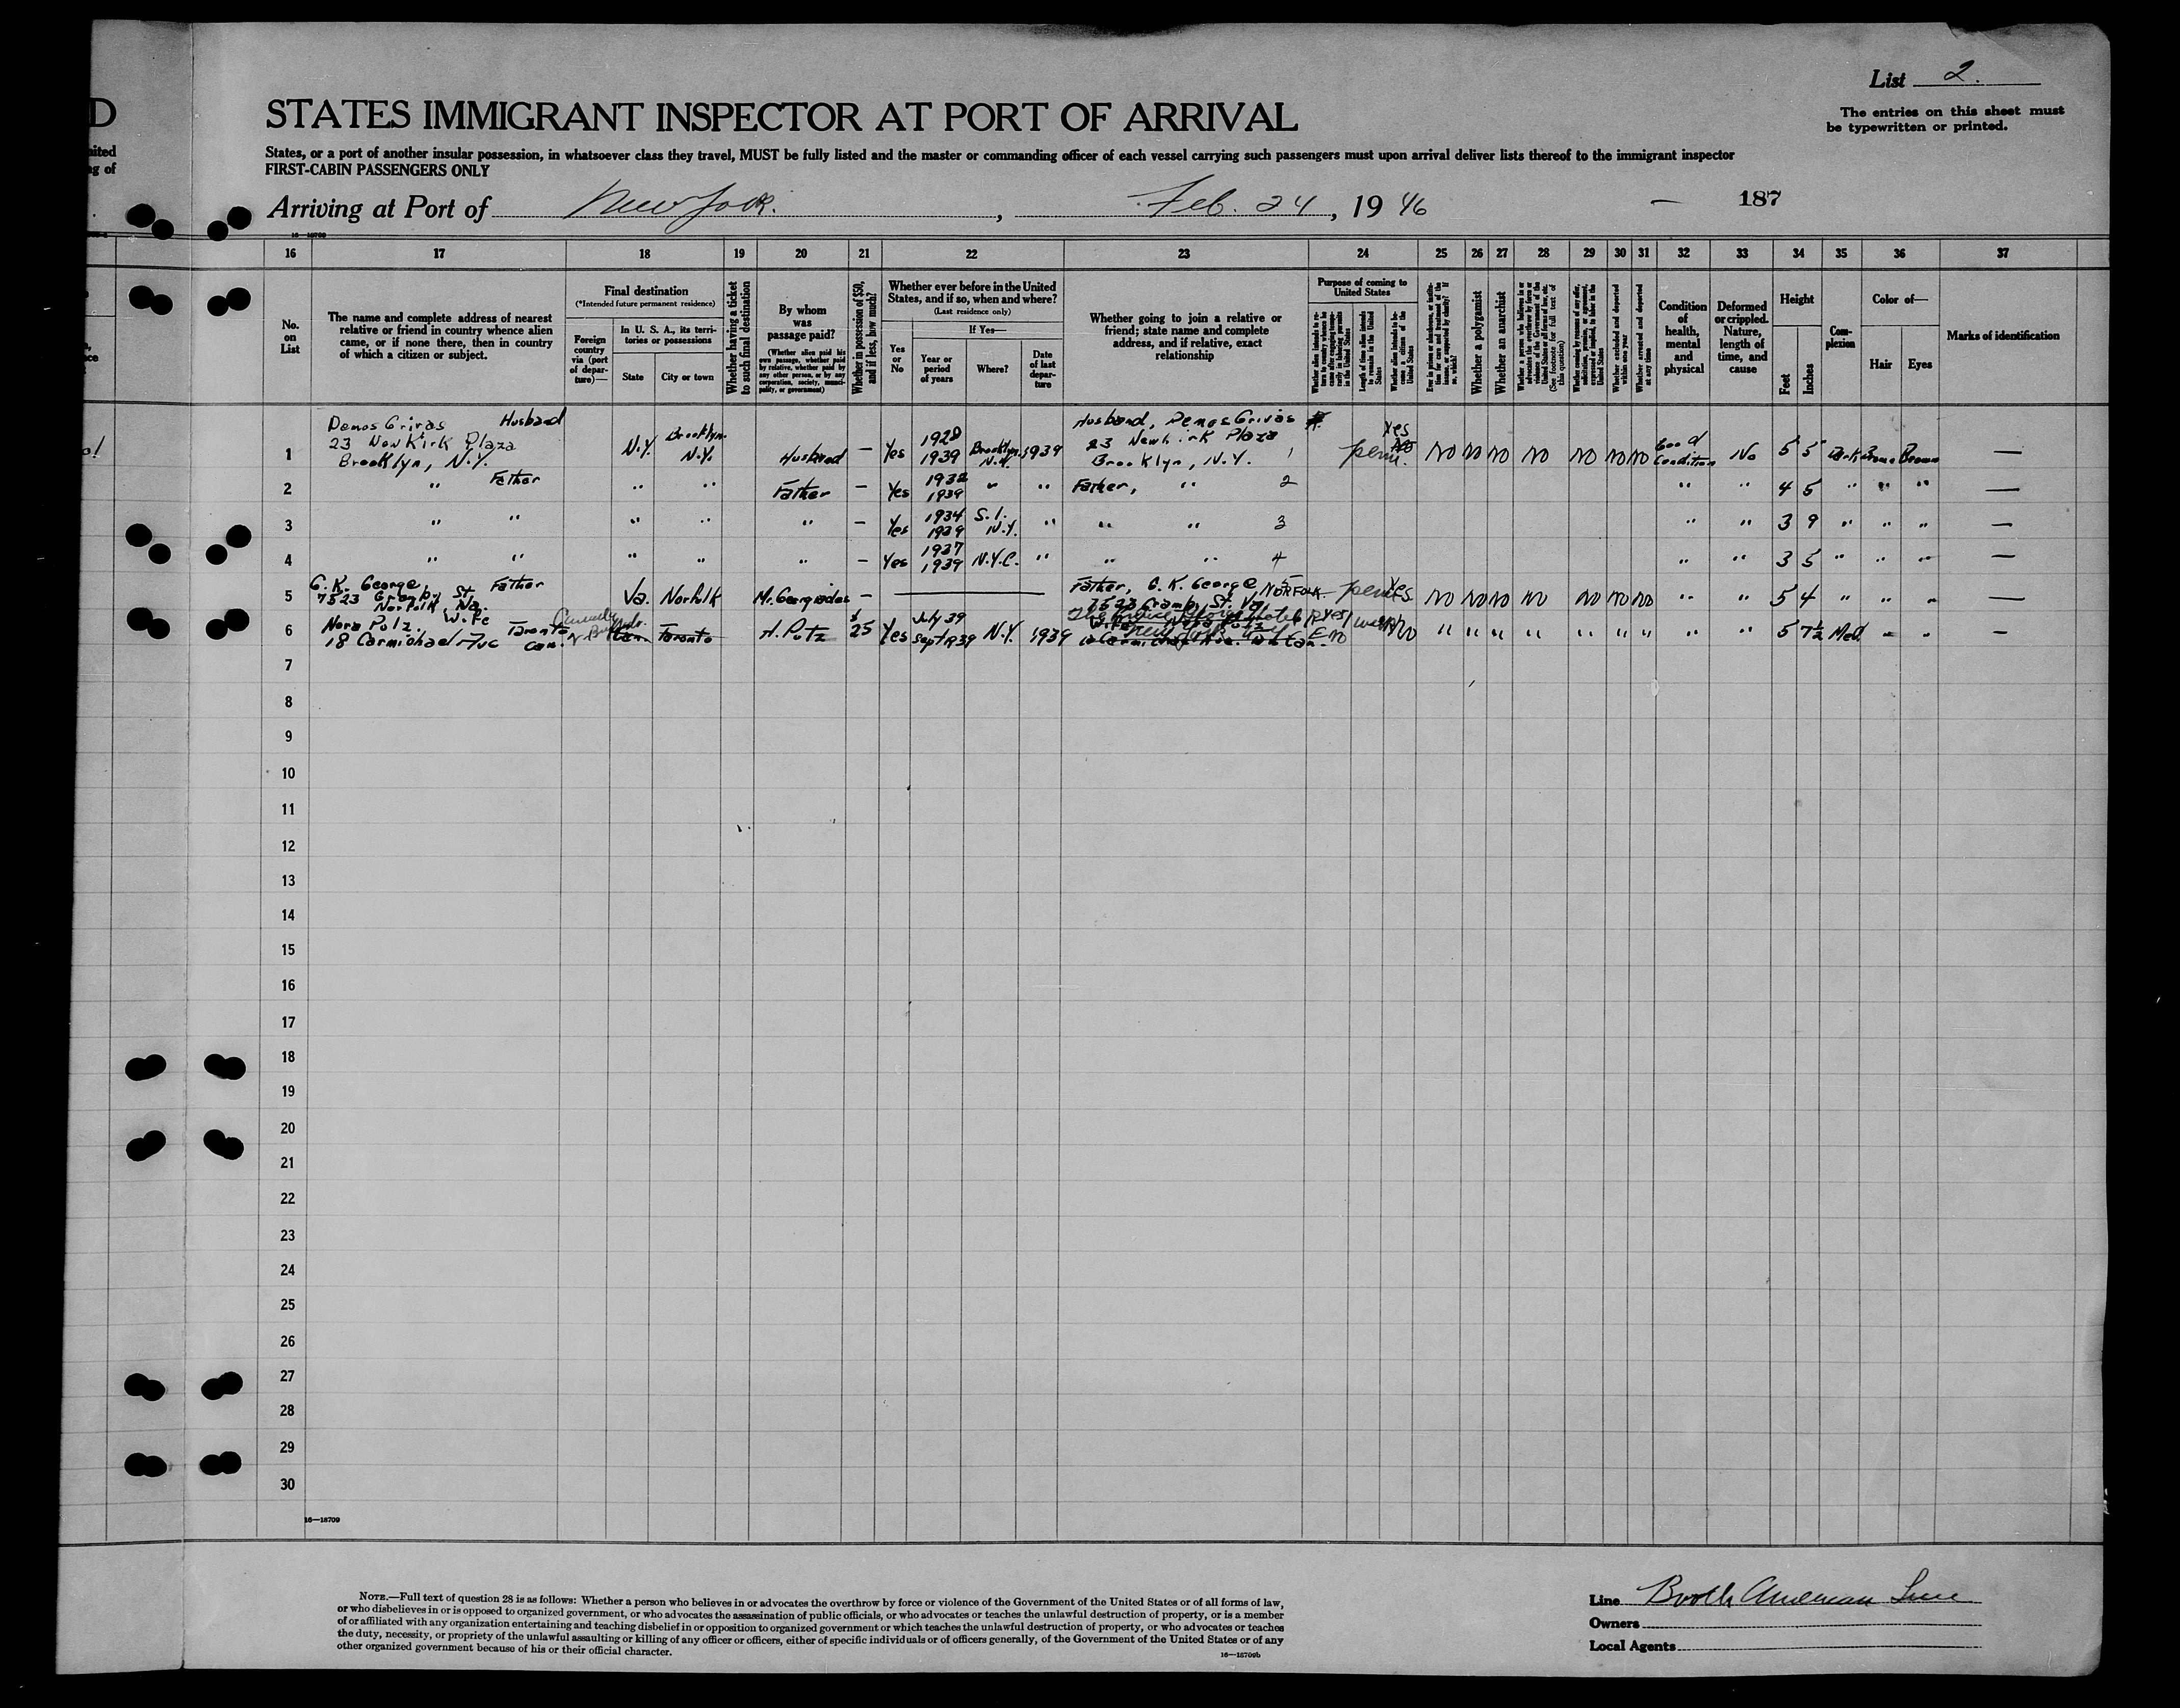 List 2.
D
STATES IMMIGRANT INSPECTOR AT PORT OF ARRIVAL
The entries on this sheet must
be typewritten or printed.
States, or a port of another insular possession, in whatsoever class they travel, MUST be fully listed and the master or commanding officer of each vessel carrying such passengers must upon arrival deliver lists thereof to the immigrant inspector
FIRST-CABIN PASSENGERS ONLY
Arriving at Port of New York. , Feb. 24, 1946
— 187
16—18709
16 17 18 19 20 21 22 23 24 25 26 27 28 29 30 31 32 33 34 35 36 37
No. on List
The name and complete address of nearest relative or friend in country whence alien came, or if none there, then in country of which a citizen or subject.
Final destination
(*Intended future permanent residence)
Foreign country via (port of departure)—
In U. S. A., its territories or possessions
State
City or town
Whether having a ticket to such final destination
By whom was passage paid?
(Whether alien paid his own passage, whether paid by relative, whether paid by any other person, or by any corporation, society, municipality, or government)
Whether in possession of $50, and if less, how much?
Whether ever before in the United States, and if so, when and where?
(Last residence only)
Yes or No
If Yes—
Year or period of years
Where?
Date of last departure
Whether going to join a relative or friend; state name and complete address, and if relative, exact relationship
Purpose of coming to United States
Length of time alien intends to remain in the United States
Whether alien intends to become a citizen of the United States
Whether a polygamist
Whether an anarchist
Whether excluded and deported within one year
Whether arrested and deported at any time
Condition of health, mental and physical
Deformed or crippled. Nature, length of time, and cause
Height
Feet
Inches
Complexion
Color of—
Hair
Eyes
Marks of identification
1 Demos Grivas Husband 23 Newkirk Plaza Brooklyn, N.Y. N.Y. Brooklyn N.Y. Husband — Yes 1928 1939 Brooklyn N.Y. 1939 Husband, Demos Grivas 23 Newkirk Plaza Brooklyn, N.Y. 1 perm. Yes No No No No No No No No Good Condition No 5 5 Dark Brown Brown —
2 " Father " " Father — Yes 1932 1939 " " Father, " 2 " " 4 5 " " " —
3 " " " " " — Yes 1934 1939 S.I. N.Y. " " " 3 " " 3 9 " " " —
4 " " " " " — Yes 1937 1939 N.Y.C. " " " 4 " " 3 5 " " " —
5 G. K. George Father 7523 Granby St. Norfolk, Va. Va. Norfolk Mr. Georgiades — — Father, G. K. George Norfolk 7523 Granby St. Va. perm Yes No No No No No No No " " 5 4 " " " —
6 Nora Putz, Wife Toronto 18 Carmichael Ave Can. Can. Toronto A. Putz $25 Yes July 39 Sept 1939 N.Y. 1939 Hotel New York Wife, Nora Putz 18 Carmichael Ave. Can. Yes No No " " " " " " " " " 5 7½ Med. " " —
7
8
9
10
11
12
13
14
15
16
17
18
19
20
21
22
23
24
25
26
27
28
29
30
16—18709
NOTE.—Full text of question 28 is as follows: Whether a person who believes in or advocates the overthrow by force or violence of the Government of the United States or of all forms of law,
or who disbelieves in or is opposed to organized government, or who advocates the assassination of public officials, or who advocates or teaches the unlawful destruction of property, or is a member
of or affiliated with any organization entertaining and teaching disbelief in or opposition to organized government or which teaches the unlawful destruction of property, or who advocates or teaches
the duty, necessity, or propriety of the unlawful assaulting or killing of any officer or officers, either of specific individuals or of officers generally, of the Government of the United States or of any
other organized government because of his or their official character.
16—18709b
Line Booth American Line
Owners
Local Agents